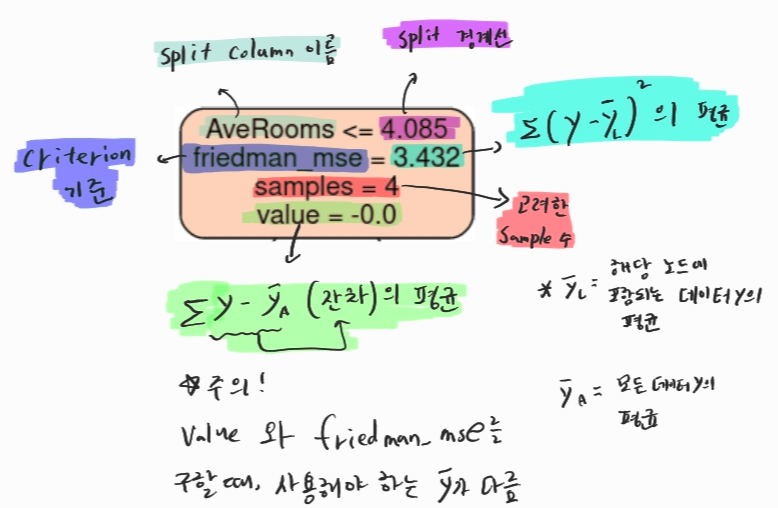 split column 이름
split 경계선
AveRooms <= 4.085
friedman_mse = 3.432
samples = 4
value = -0.0
criterion
기준
Σ(y-ȳ_L)²의 평균
고려한
sample 수
Σy-ȳ_A (잔차)의 평균
* ȳ_L = 해당 노드에
포함되는 데이터 y의
평균
ȳ_A = 모든 데이터 y의
평균
☆주의!
value 와 friedman_mse를
구할 때, 사용해야 하는 ȳ가 다름